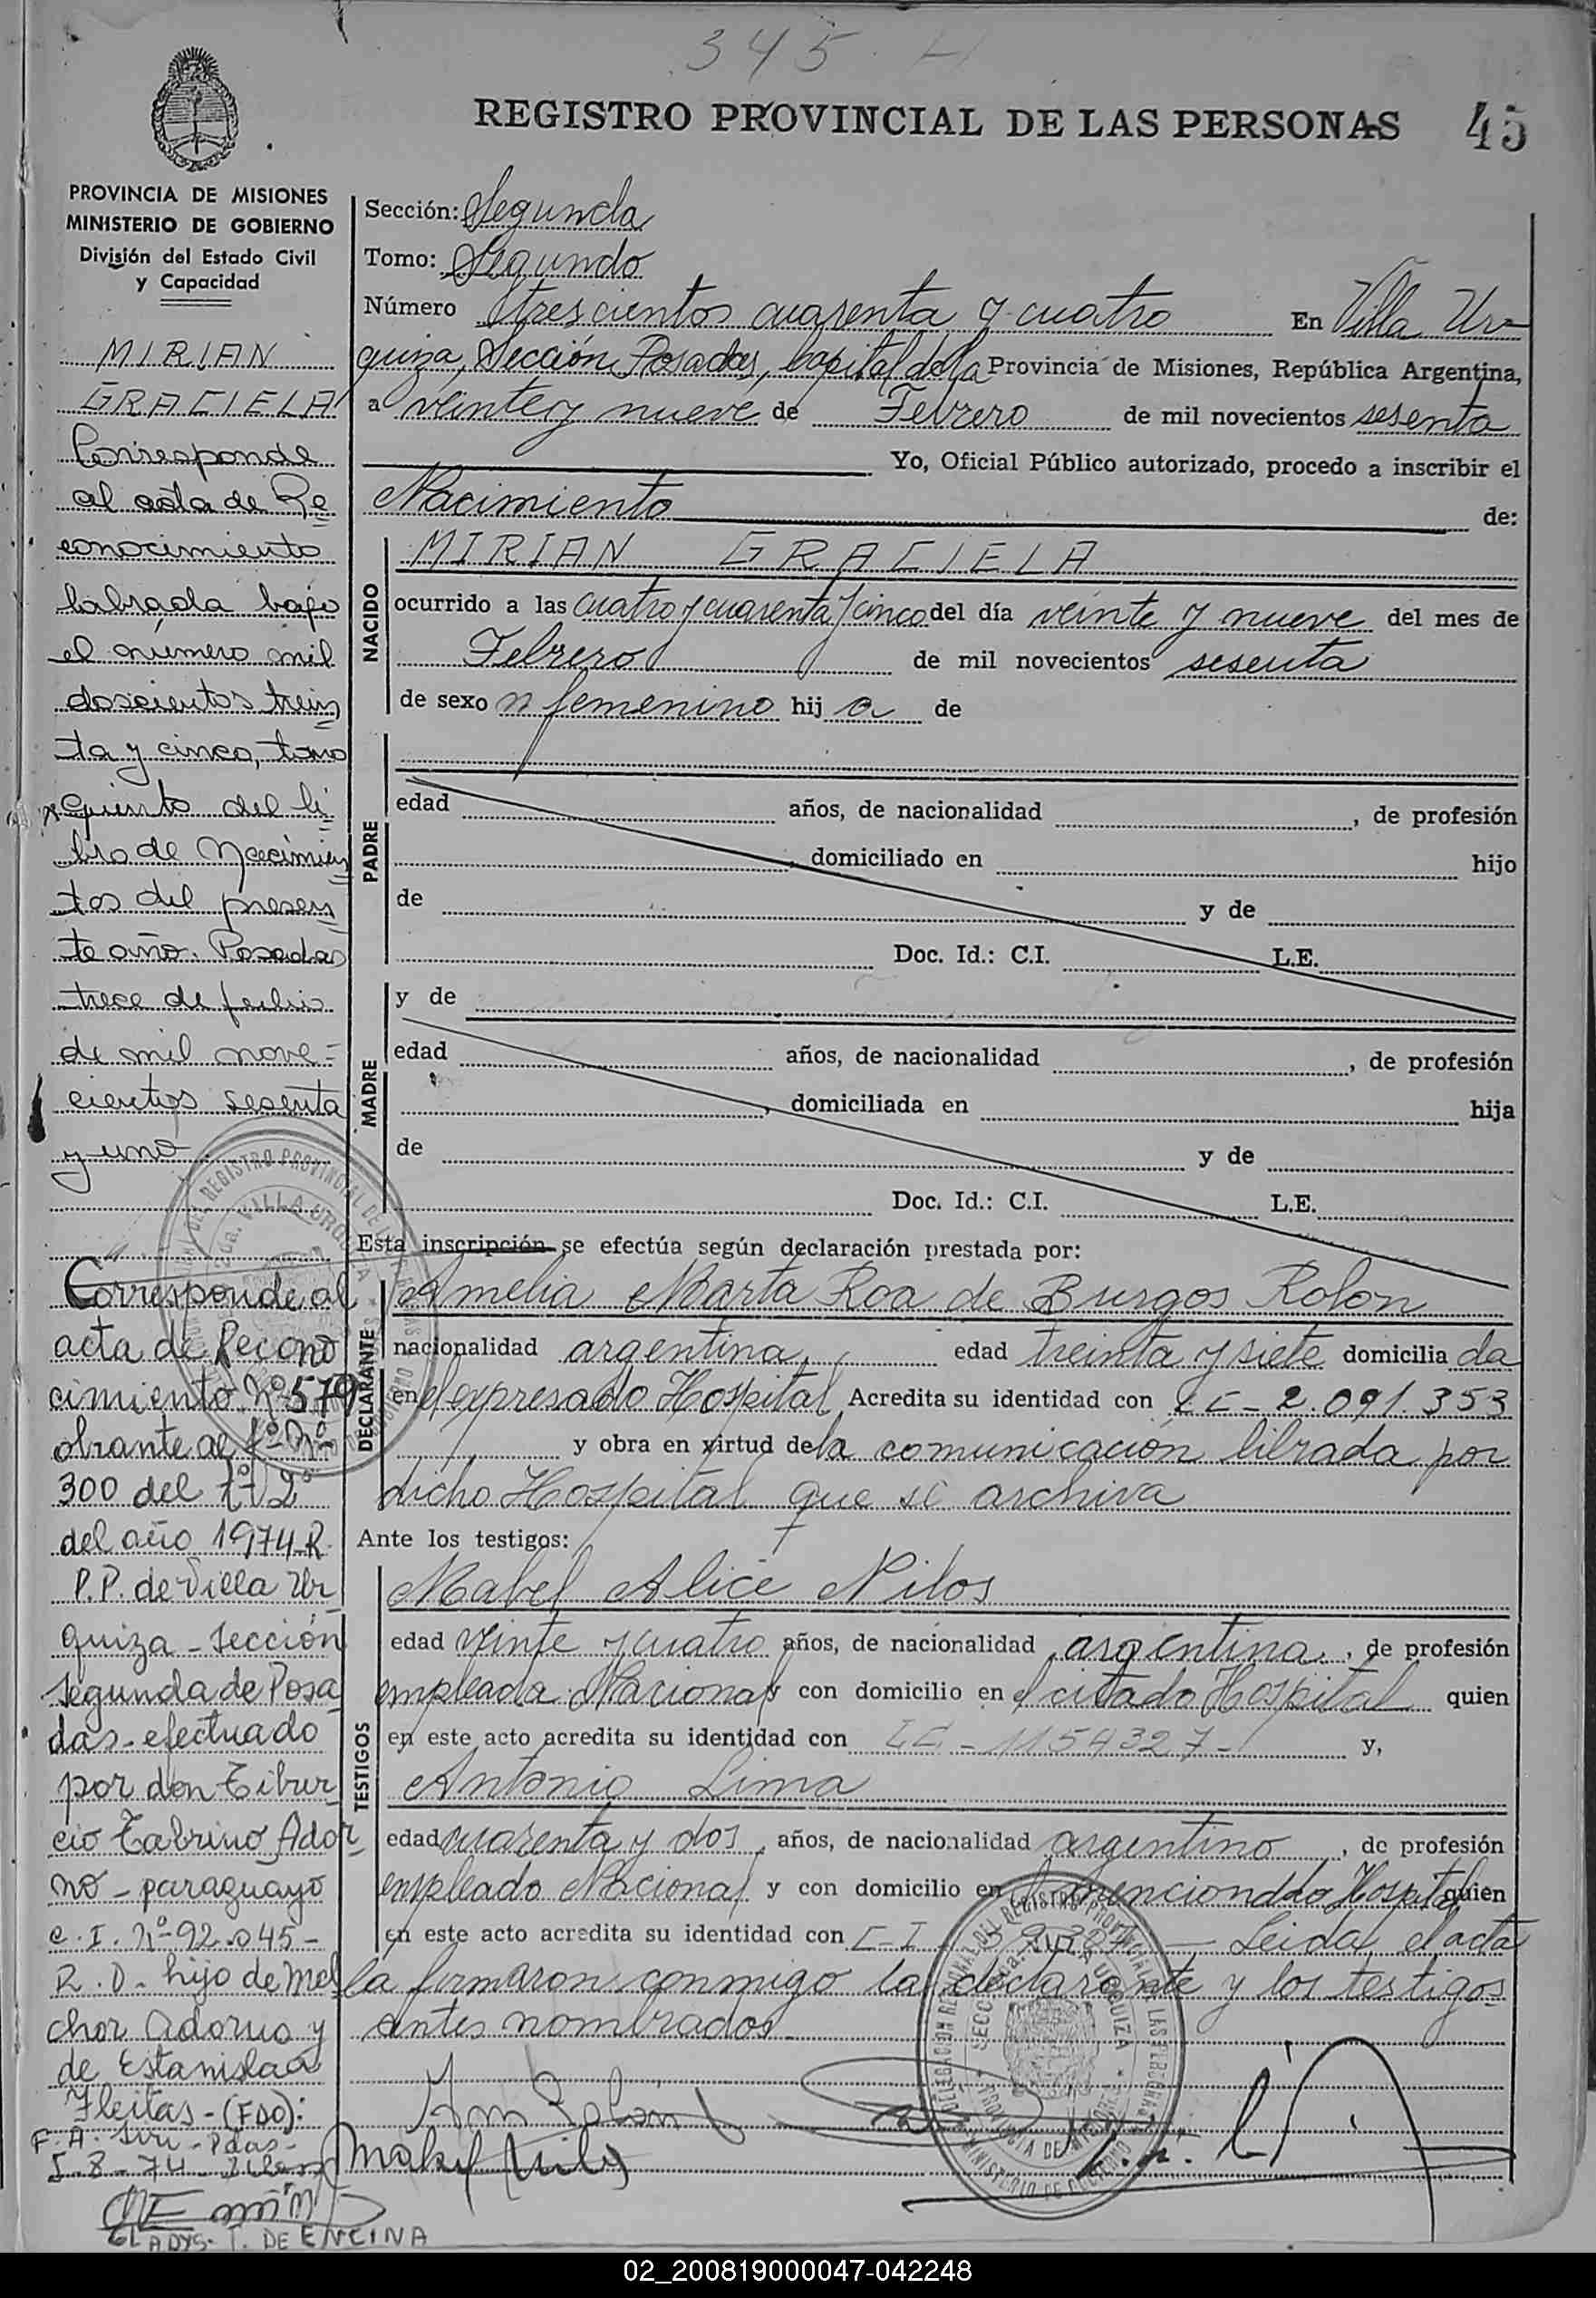 345
REGISTRO PROVINCIAL DE LAS PERSONAS 45
PROVINCIA DE MISIONES
MINISTERIO DE GOBIERNO
División del Estado Civil
y Capacidad
MIRIAN
GRACIELA
Corresponde
al acta de Re
conocimiento
labrada bajo
el número mil
doscientos trein
ta y cinco, tomo
quinto del li
bro de Nacimien
tos del presen
te año. Posadas
trece de
de mil nove-
cientos sesenta
y uno
Corresponde al
acta de Recono
cimiento Nº 579
obrante al fº Nº
300 del tº 2º
del año 1974-R.
P.P. de Villa Ur
quiza - Sección
Segunda de Posa
das - efectuado
por don Tibur
cio Fabrino Ador
no - paraguayo
C.I. Nº 92.045-
R.D. hijo de Mel
chor Adorno y
de Estanislaa
Fleitas - (FDO):
5-8-74
GLADYS. T. DE ENCINA
Sección: Segunda
Tomo: Segundo
Número trescientos cuarenta y cuatro En Villa Ur-
quiza, Sección Posadas, Capital de la Provincia de Misiones, República Argentina,
a veinte y nueve de Febrero de mil novecientos sesenta
Yo, Oficial Público autorizado, procedo a inscribir el
Nacimiento de:
NACIDO
MIRIAN GRACIELA
ocurrido a las cuatro y cuarenta y cinco del día veinte y nueve del mes de
Febrero de mil novecientos sesenta
de sexo femenino hij a de
PADRE
edad años, de nacionalidad , de profesión
, domiciliado en hijo
de y de
Doc. Id.: C.I. L.E.
MADRE
y de
edad años, de nacionalidad , de profesión
, domiciliada en hija
de y de
Doc. Id.: C.I. L.E.
Esta inscripción se efectúa según declaración prestada por:
DECLARANTE
Amelia Marta Roa de Burgos Rolon
nacionalidad argentina, edad treinta y siete domicilia da
en el expresado Hospital Acredita su identidad con LC-2.091.353
y obra en virtud de la comunicación librada por
dicho Hospital que se archiva
Ante los testigos:
TESTIGOS
Mabel Alice Nilos
edad veinte y cuatro años, de nacionalidad argentina, de profesión
empleada Nacional y con domicilio en el citado Hospital quien
en este acto acredita su identidad con LC-1154327- y,
Antonio Lima
edad cuarenta y dos, años, de nacionalidad argentino, de profesión
empleado Nacional y con domicilio en el mencionado Hospital quien
en este acto acredita su identidad con C-I - Leida el acta
la firmaron conmigo la declarante y los testigos
antes nombrados.
02_200819000047-042248